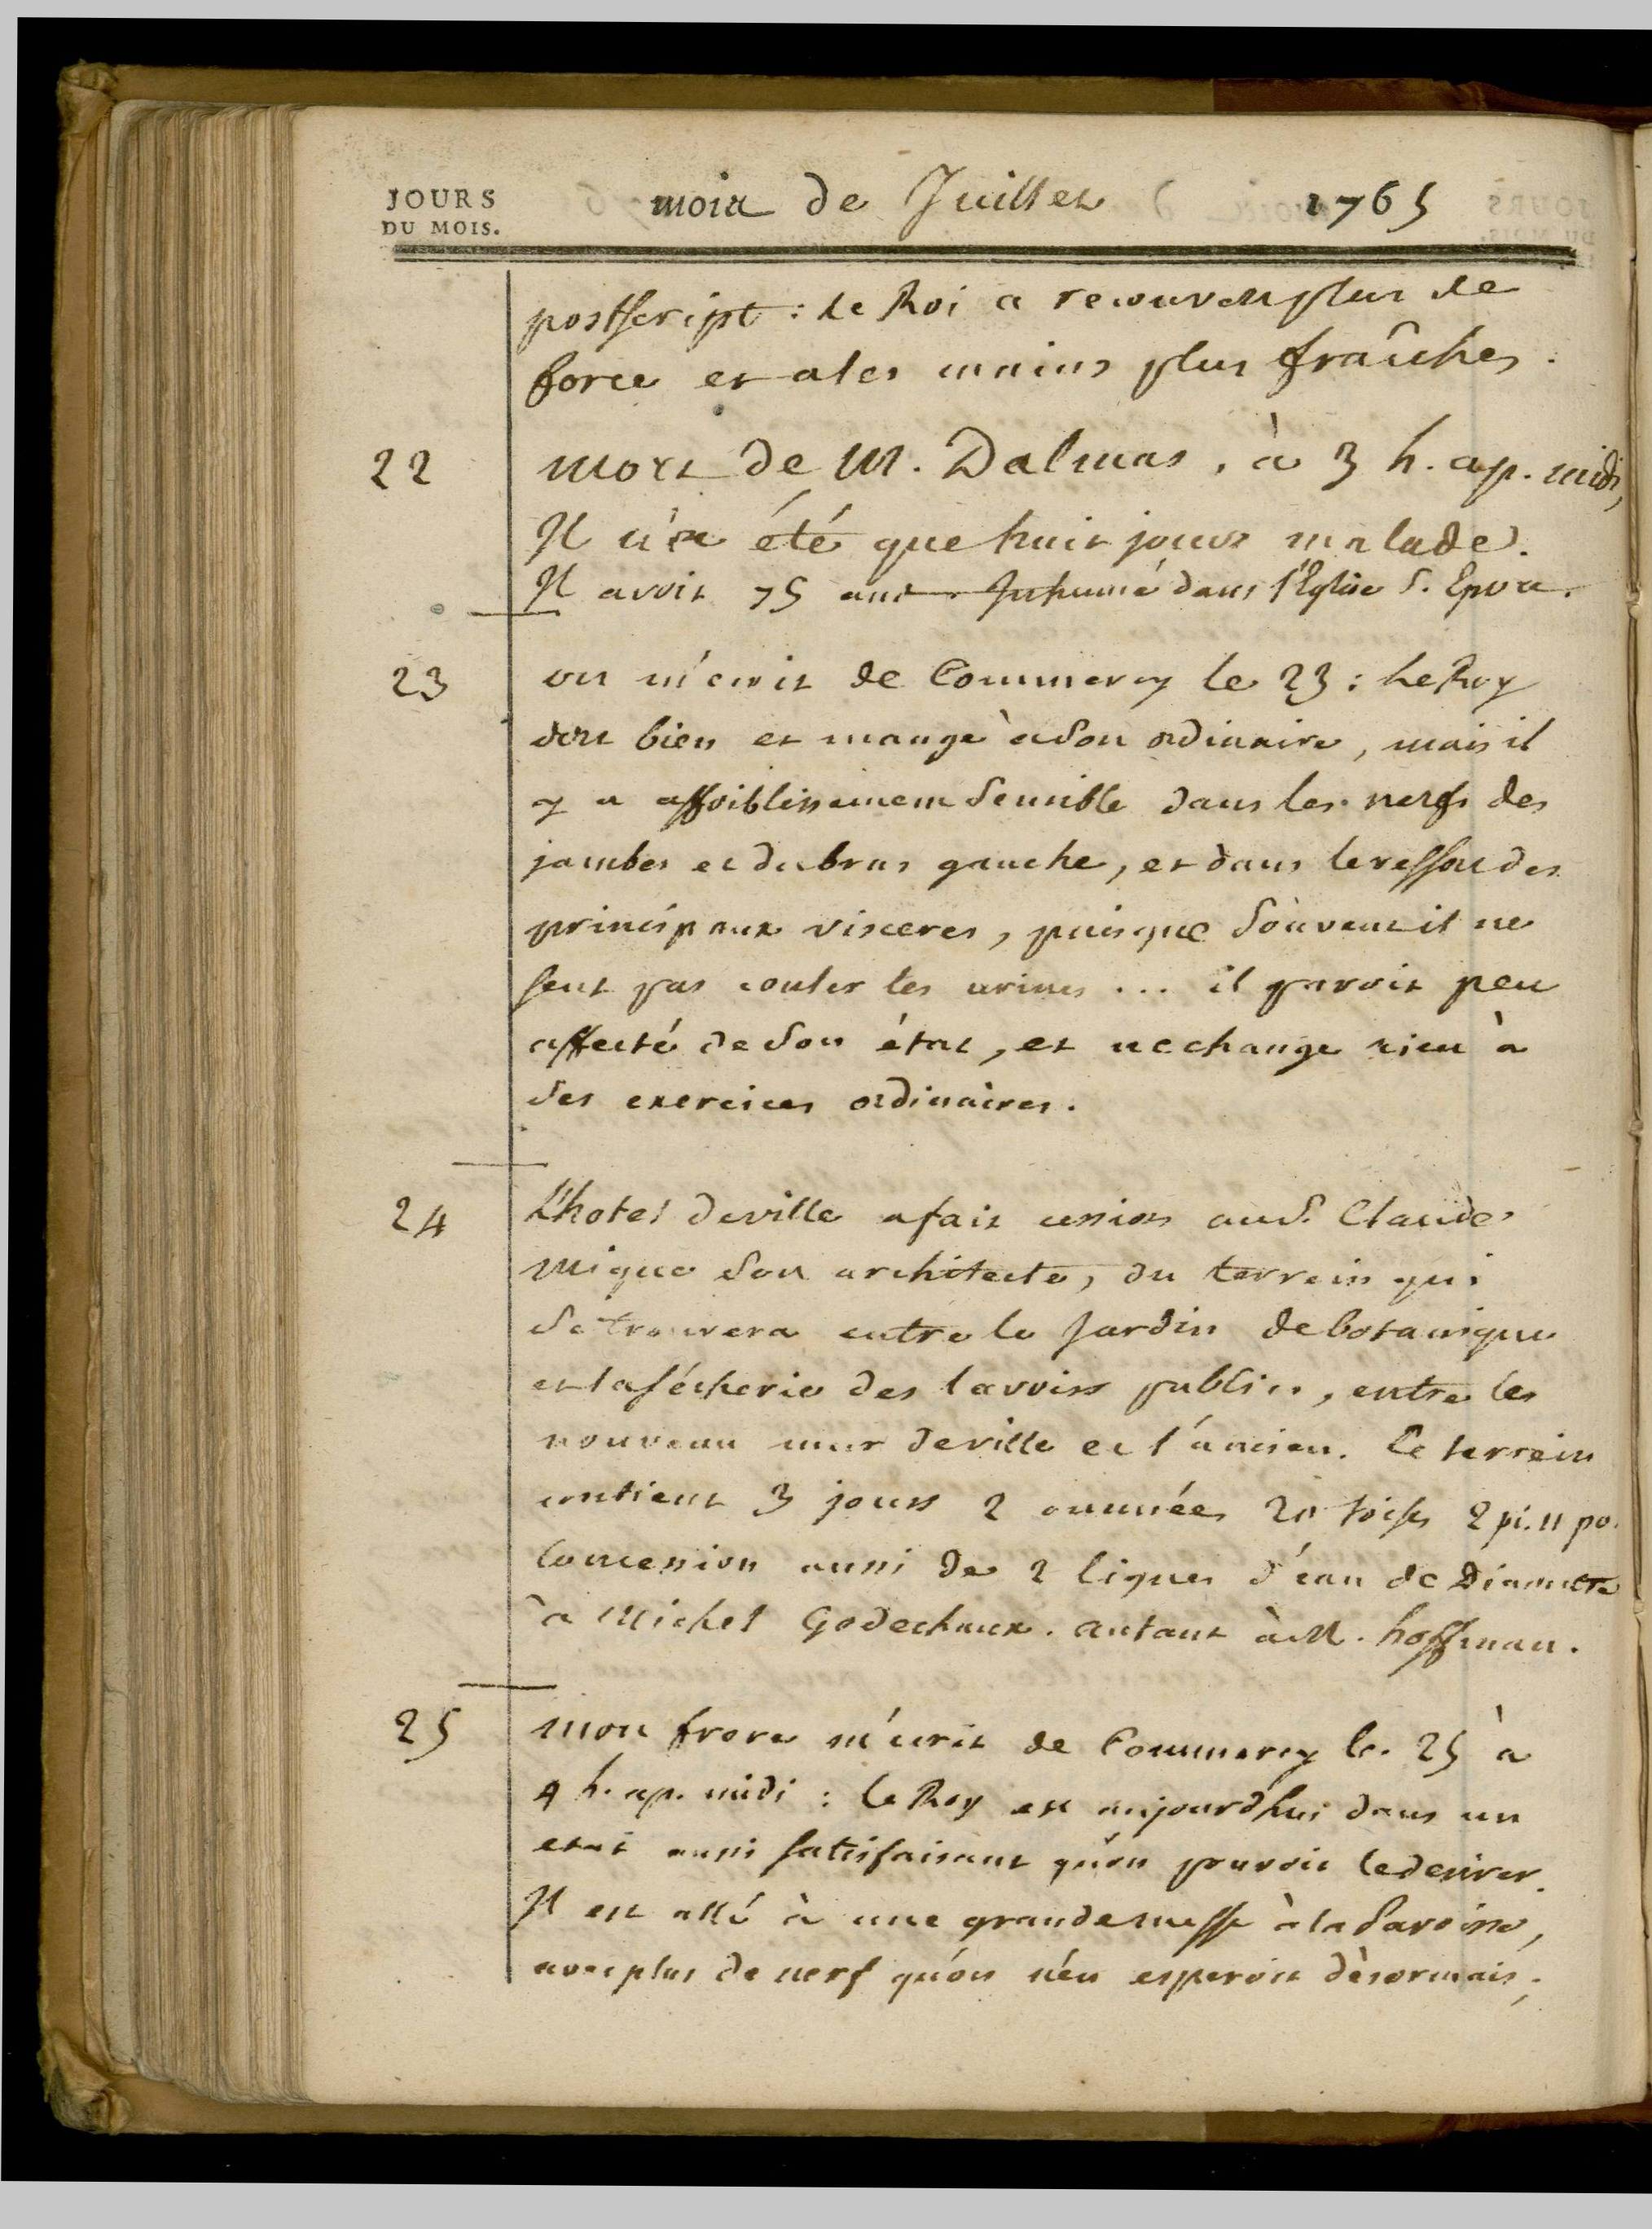 JOURS
DU MOIS.
mois de Juillet 1765
postscript : le Roi a recouvert plus de
force et a les mains plus fraîches.
22 mort de M. Dalmas, à 3 h. ap. midi,
Il n'a été que huit jours malade.
Il avoit 75 ans Inhumé dans l'Eglise S. Epvre.
23 on m'écrit de Commercy le 23 : Le Roy
dort bien et mange à son ordinaire, mais il
y a affoiblissement sensible dans les nerfs des
jambes et du bras gauche, et dans le ressort des
principaux visceres, puisque souvent il ne
sent pas couler les urines ... il paroit peu
affecté de son état, et ne change rien à
ses exercices ordinaires.
24 L'hotel de ville a fait cession au S. Claude
Mique son architecte, du terrein qui
se trouvera entre le Jardin de botanique
et la sécherie des lavoirs publics, entre les
nouveau mur de ville et l'ancien. Ce terrein
contient 3 jours 2 ommées toises 2 pi. 11 po.
Concession aussi de 2 lignes d'eau de Diametre
à Michel Godechaux. autant à M. hoffman.
25 mon frere m'écrit de Commercy le 25 à
4 h. ap. midi : le Roy est aujourdhui dans un
etat aussi satisfaisant qu'on pouvoit le desirer.
Il est allé à une grande messe à la Paroisse,
avec plus de nerf qu'on n'en esperoit dèsormais,